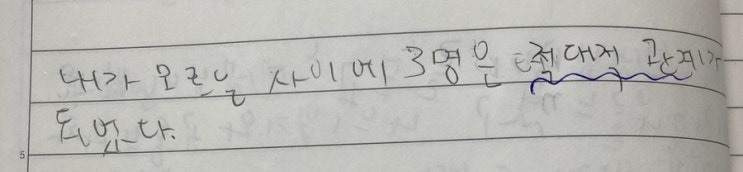 내가 모르는 사이에 3명은 절대적 관계가
되었다.
5